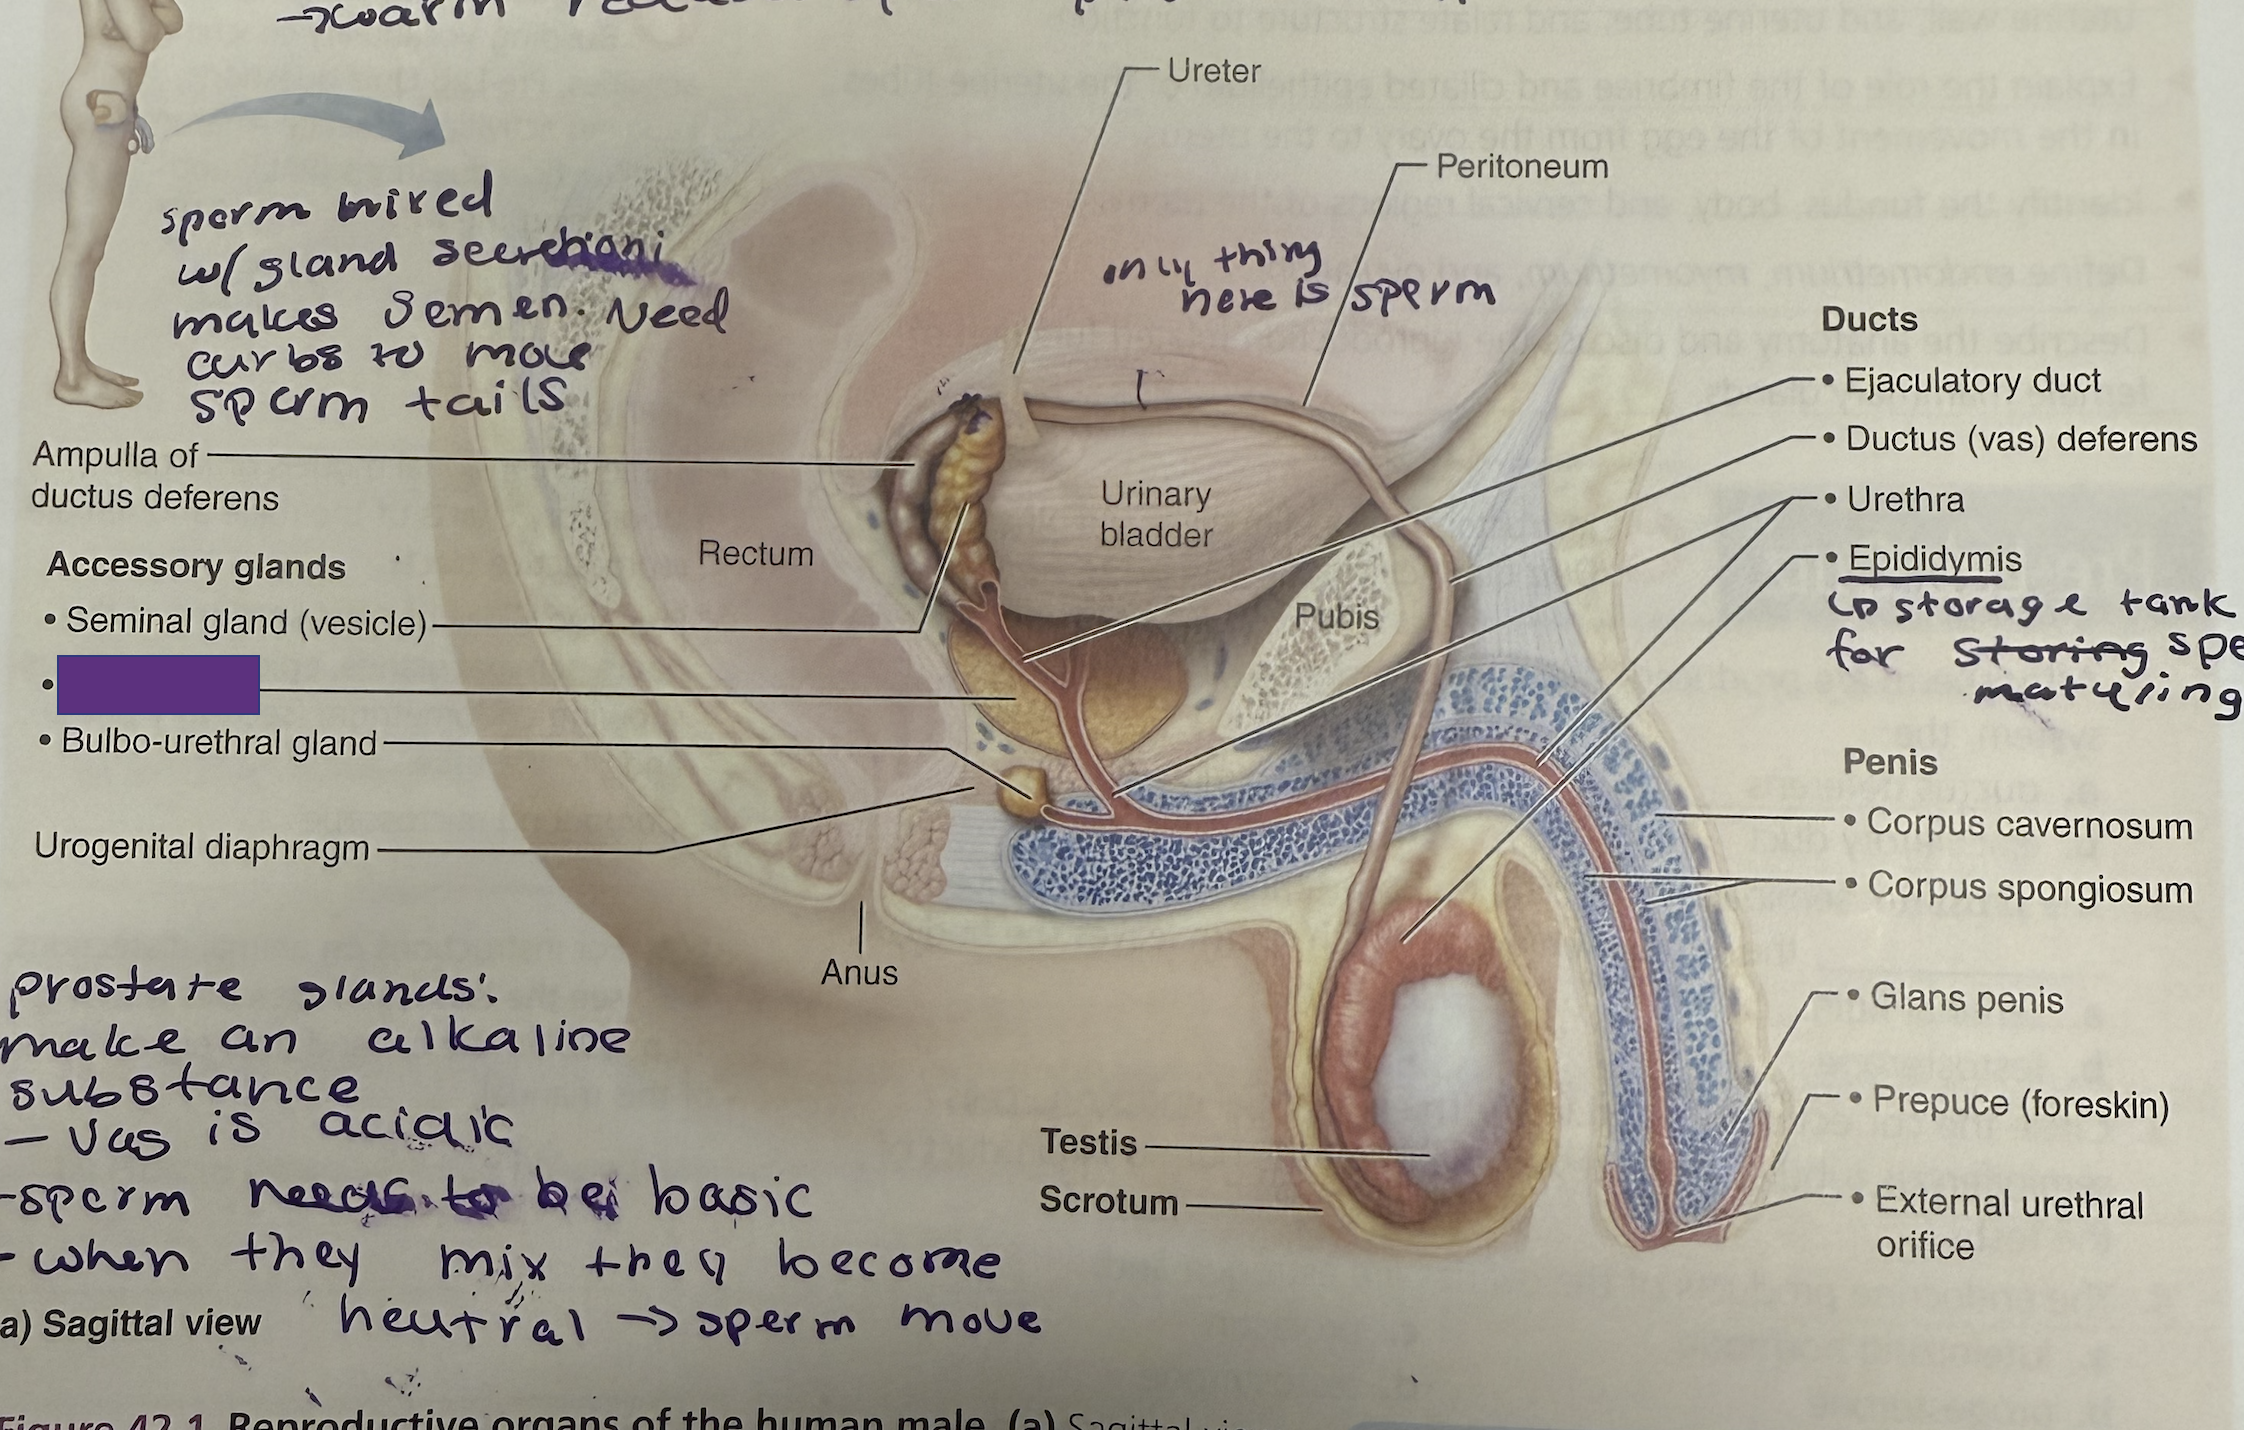 →warm
Ureter
Peritoneum
sperm mixed
w/ gland secretioni
makes semen. Need
carbs to move
sperm tails
only thing
here is sperm
Ducts
• Ejaculatory duct
• Ductus (vas) deferens
• Urethra
• Epididymis
↳ storage tank
for storing spe
maturing
Ampulla of
ductus deferens
Accessory glands
• Seminal gland (vesicle)
•
• Bulbo-urethral gland
Urogenital diaphragm
Rectum
Urinary
bladder
Pubis
Anus
Penis
• Corpus cavernosum
• Corpus spongiosum
• Glans penis
• Prepuce (foreskin)
• External urethral
orifice
Testis
Scrotum
prostate glands:
make an alkaline
substance
- Vas is acidic
-sperm needs to be basic
- when they mix they become
neutral → sperm move
a) Sagittal view
Figure 42.1 Reproductive organs of the human male. (a) Sagittal